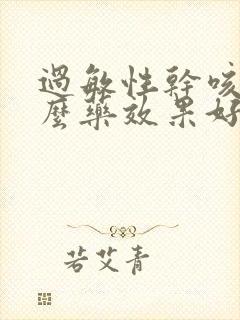 過敏性幹咳
麼藥效果好
若艾青